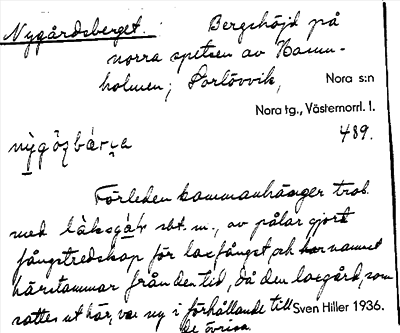 Nygårdsberget. Bergshöjd på
norra spetsen av Hamn-
holmen; Torlövvik, Nora s:n
Nora tg., Västernorrl. l.
489.
Förleden sammanhänger trol.
med sbt. m., av pålar gjort
fångstredskap för laxfångst, och namnet
härstammar från den tid, då den laxgård, som
sattes ut här, var ny i förhållande till Sven Hiller 1936.
de övriga.